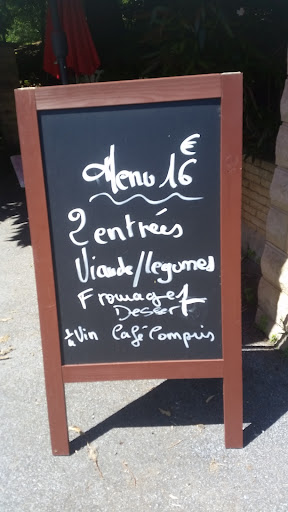 Menu 16 €
2 entrées
Viande/légumes
Fromage
Dessert
Vin Café Compris